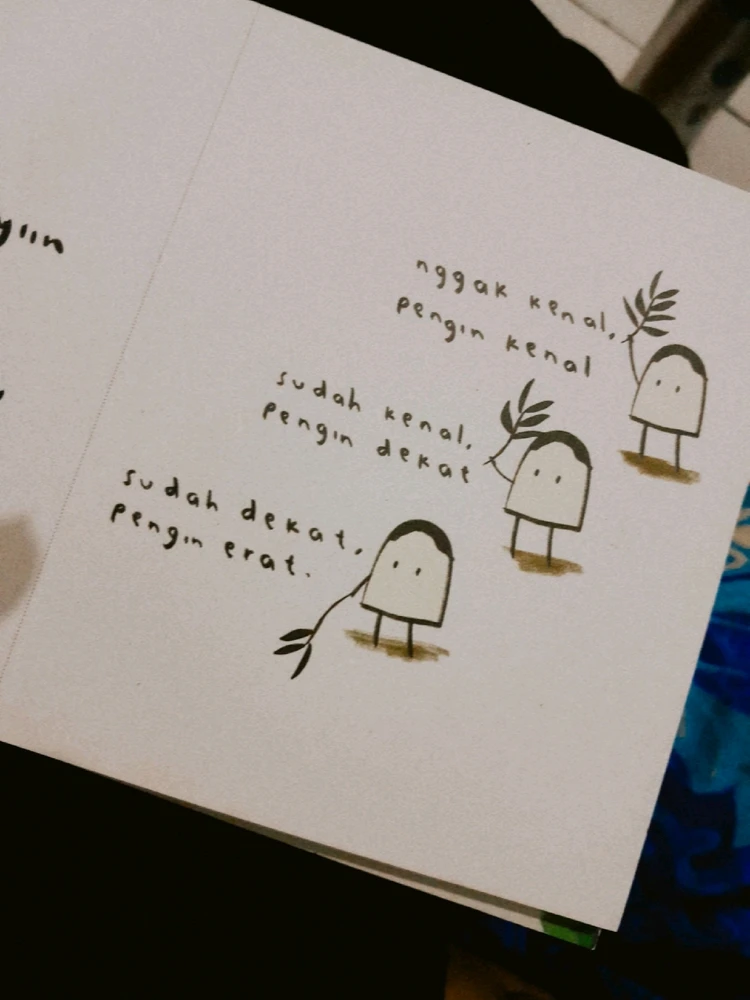 nggak kenal,
pengin kenal
sudah kenal,
pengin dekat
sudah dekat,
pengin erat.